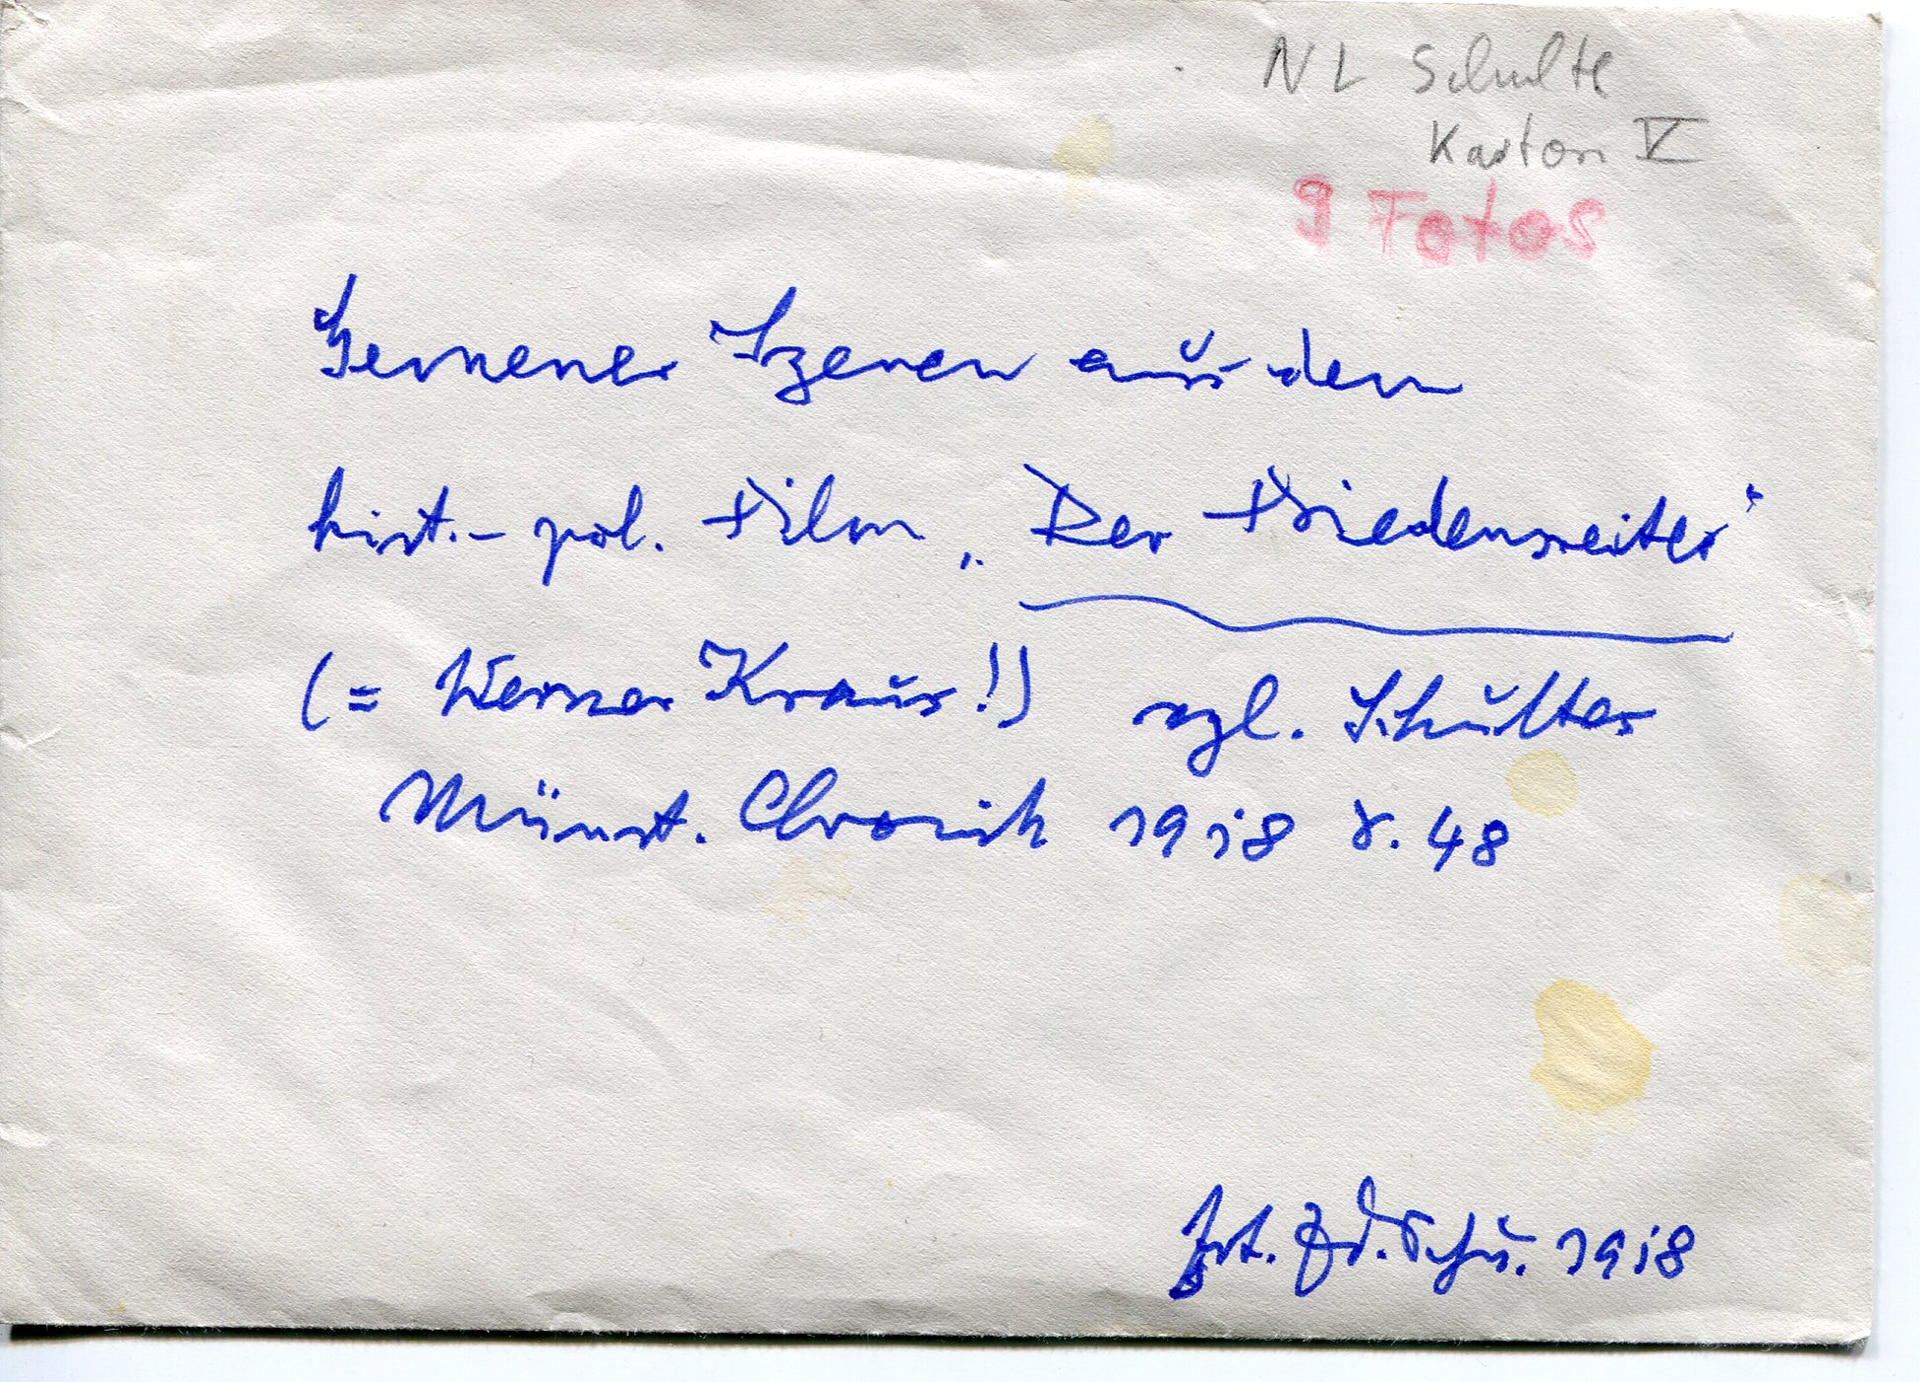 NL Schulte
Karton V
9 Fotos
Gemener Szenen aus dem
hist.-pol. Film „Der Friedensreiter"
(= Werner Kraus!) vgl. Schultes
Münst. Chronik 1918 S. 48
fot. Ed. Schu. 1918